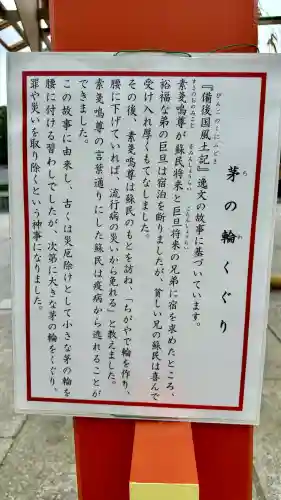 茅の輪くぐり
ち
わ
『備後国風土記』逸文の故事に基づいています。
びんごのくにふどき
素戔嗚尊が蘇民将来と巨旦将来の兄弟に宿を求めたところ、
すさのおのみこと
そみんしょうらい
こたんしょうらい
裕福な弟の巨旦は宿泊を断りましたが、貧しい兄の蘇民は喜んで
受け入れ厚くもてなしました。
その後、素戔嗚尊は蘇民のもとを訪ね、「ちがやで輪を作り、
腰に下げていれば、流行病の災いから免れる」と教えました。
素戔嗚尊の言葉通りにした蘇民は疫病から逃れることが
できました。
この故事に由来し、古くは災厄除けとして小さな茅の輪を
腰に付ける習わしでしたが、次第に大きな茅の輪をくぐり、
罪や災いを取り除くという神事になりました。